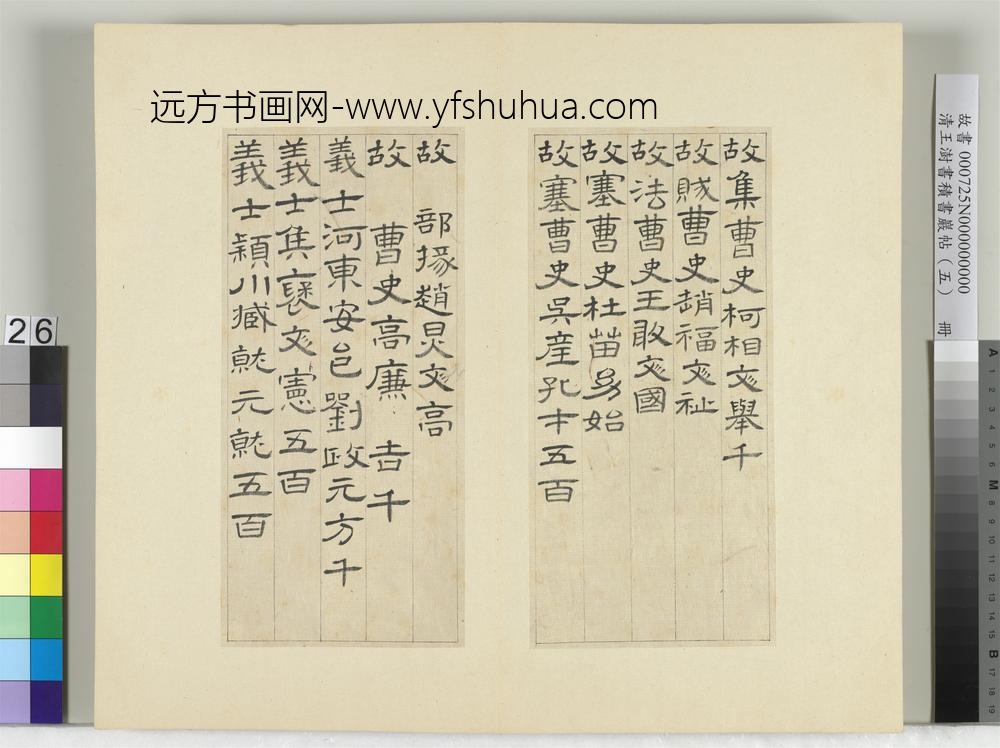 远方书画网-www.yfshuhua.com
故集曹史柯相文舉千
故賊曹史趙福文祉
故法曹史王敢文國
故塞曹史杜苗幼始
故塞曹史吳產孔才五百
故 部掾趙炅文高
故 曹史高廉 吉千
義士河東安邑劉政元方千
義士侯褒文憲五百
義士穎川臧就元就五百
故書 000725N000000000
清王澍書積書巖帖（五） 冊
26
A 1 2 3 4 5 M 8 9 10 11 12 13 14 15 B 17 18 19